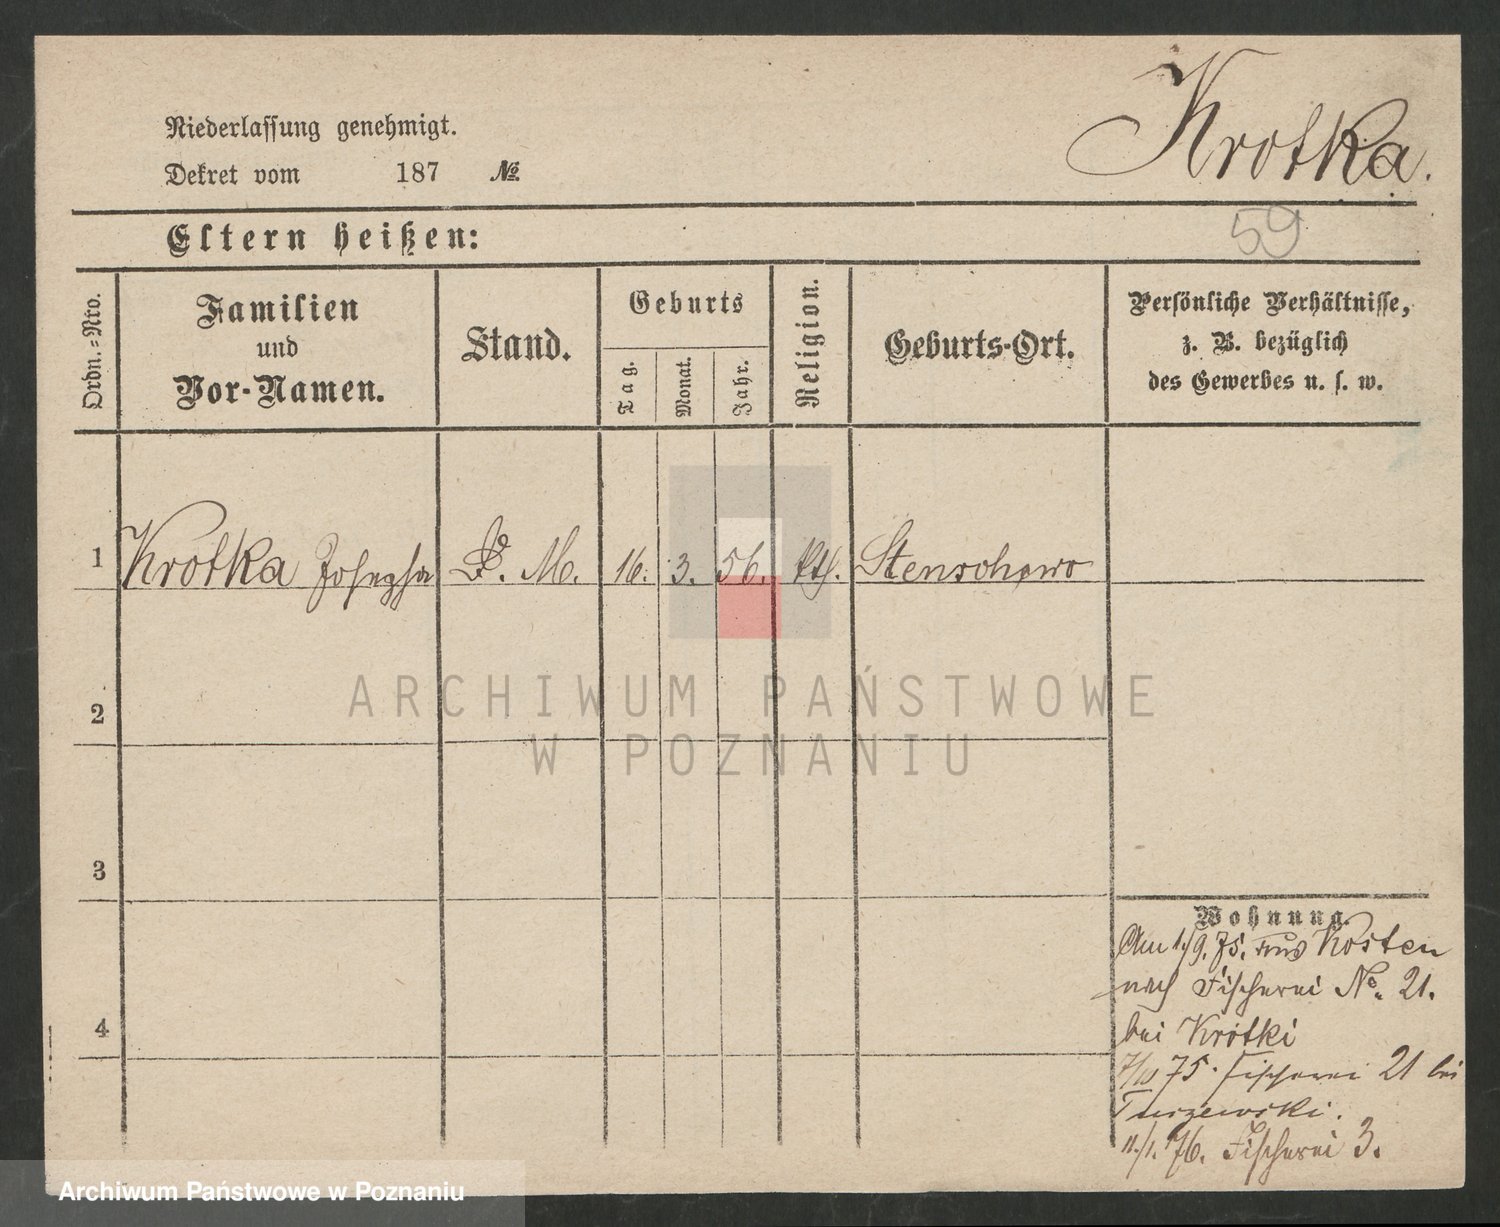 Krotka.
Niederlassung genehmigt.
Dekret vom 187 №
59
Eltern heißen:
Ordn.-Nro.
Familien
und
Vor-Namen.
Stand.
Geburts
Tag.
Monat.
Jahr.
Religion.
Geburts-Ort.
Persönliche Verhältnisse,
z. B. bezüglich
des Gewerbes u. s. w.
1 Krotka Josepha D. M. 16. 3. 56. kth. Stenschewo
2
3
4
Wohnung.
Am 1./9. 75. aus Kosten
nach Fischerei No. 21.
bei Krotki
7/10 75. Fischerei 21 bei
11./1. 76. Fischerei 3.
ARCHIWUM PAŃSTWOWE
W POZNANIU
Archiwum Państwowe w Poznaniu